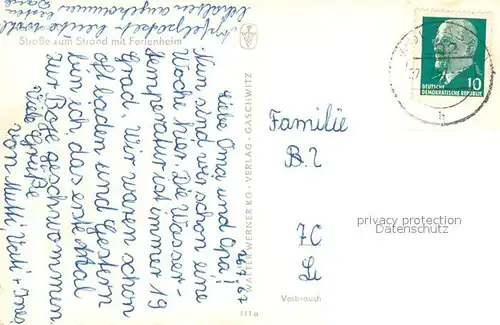 Apfelpaket heute wohl
behalten angekommen
Straße zum Strand mit Ferienheim
27.7.67
Liebe Oma und Opa!
Nun sind wir schon eine
Woche hier. Die Wasser-
temperatur ist immer 19
Grad. Wir waren schon
oft baden und gestern
bin ich das erste Mal
zur Boje geschwommen.
Viele Grüße
von Mutti, Vati + Ines
WALTER WERNER KG · VERLAG · GASCHWITZ
111a
10
DEUTSCHE
DEMOKRATISCHE REPUBLIK
h
Familie
B. Z
privacy protection
Datenschutz
70
Le
Verbrauch